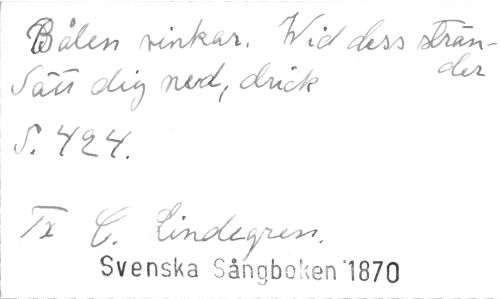 Bålen vinkar. Wid dess strän-
der
Sätt dig ned, drick
S. 424.
Tx C. Lindegren.
Svenska Sångboken 1870